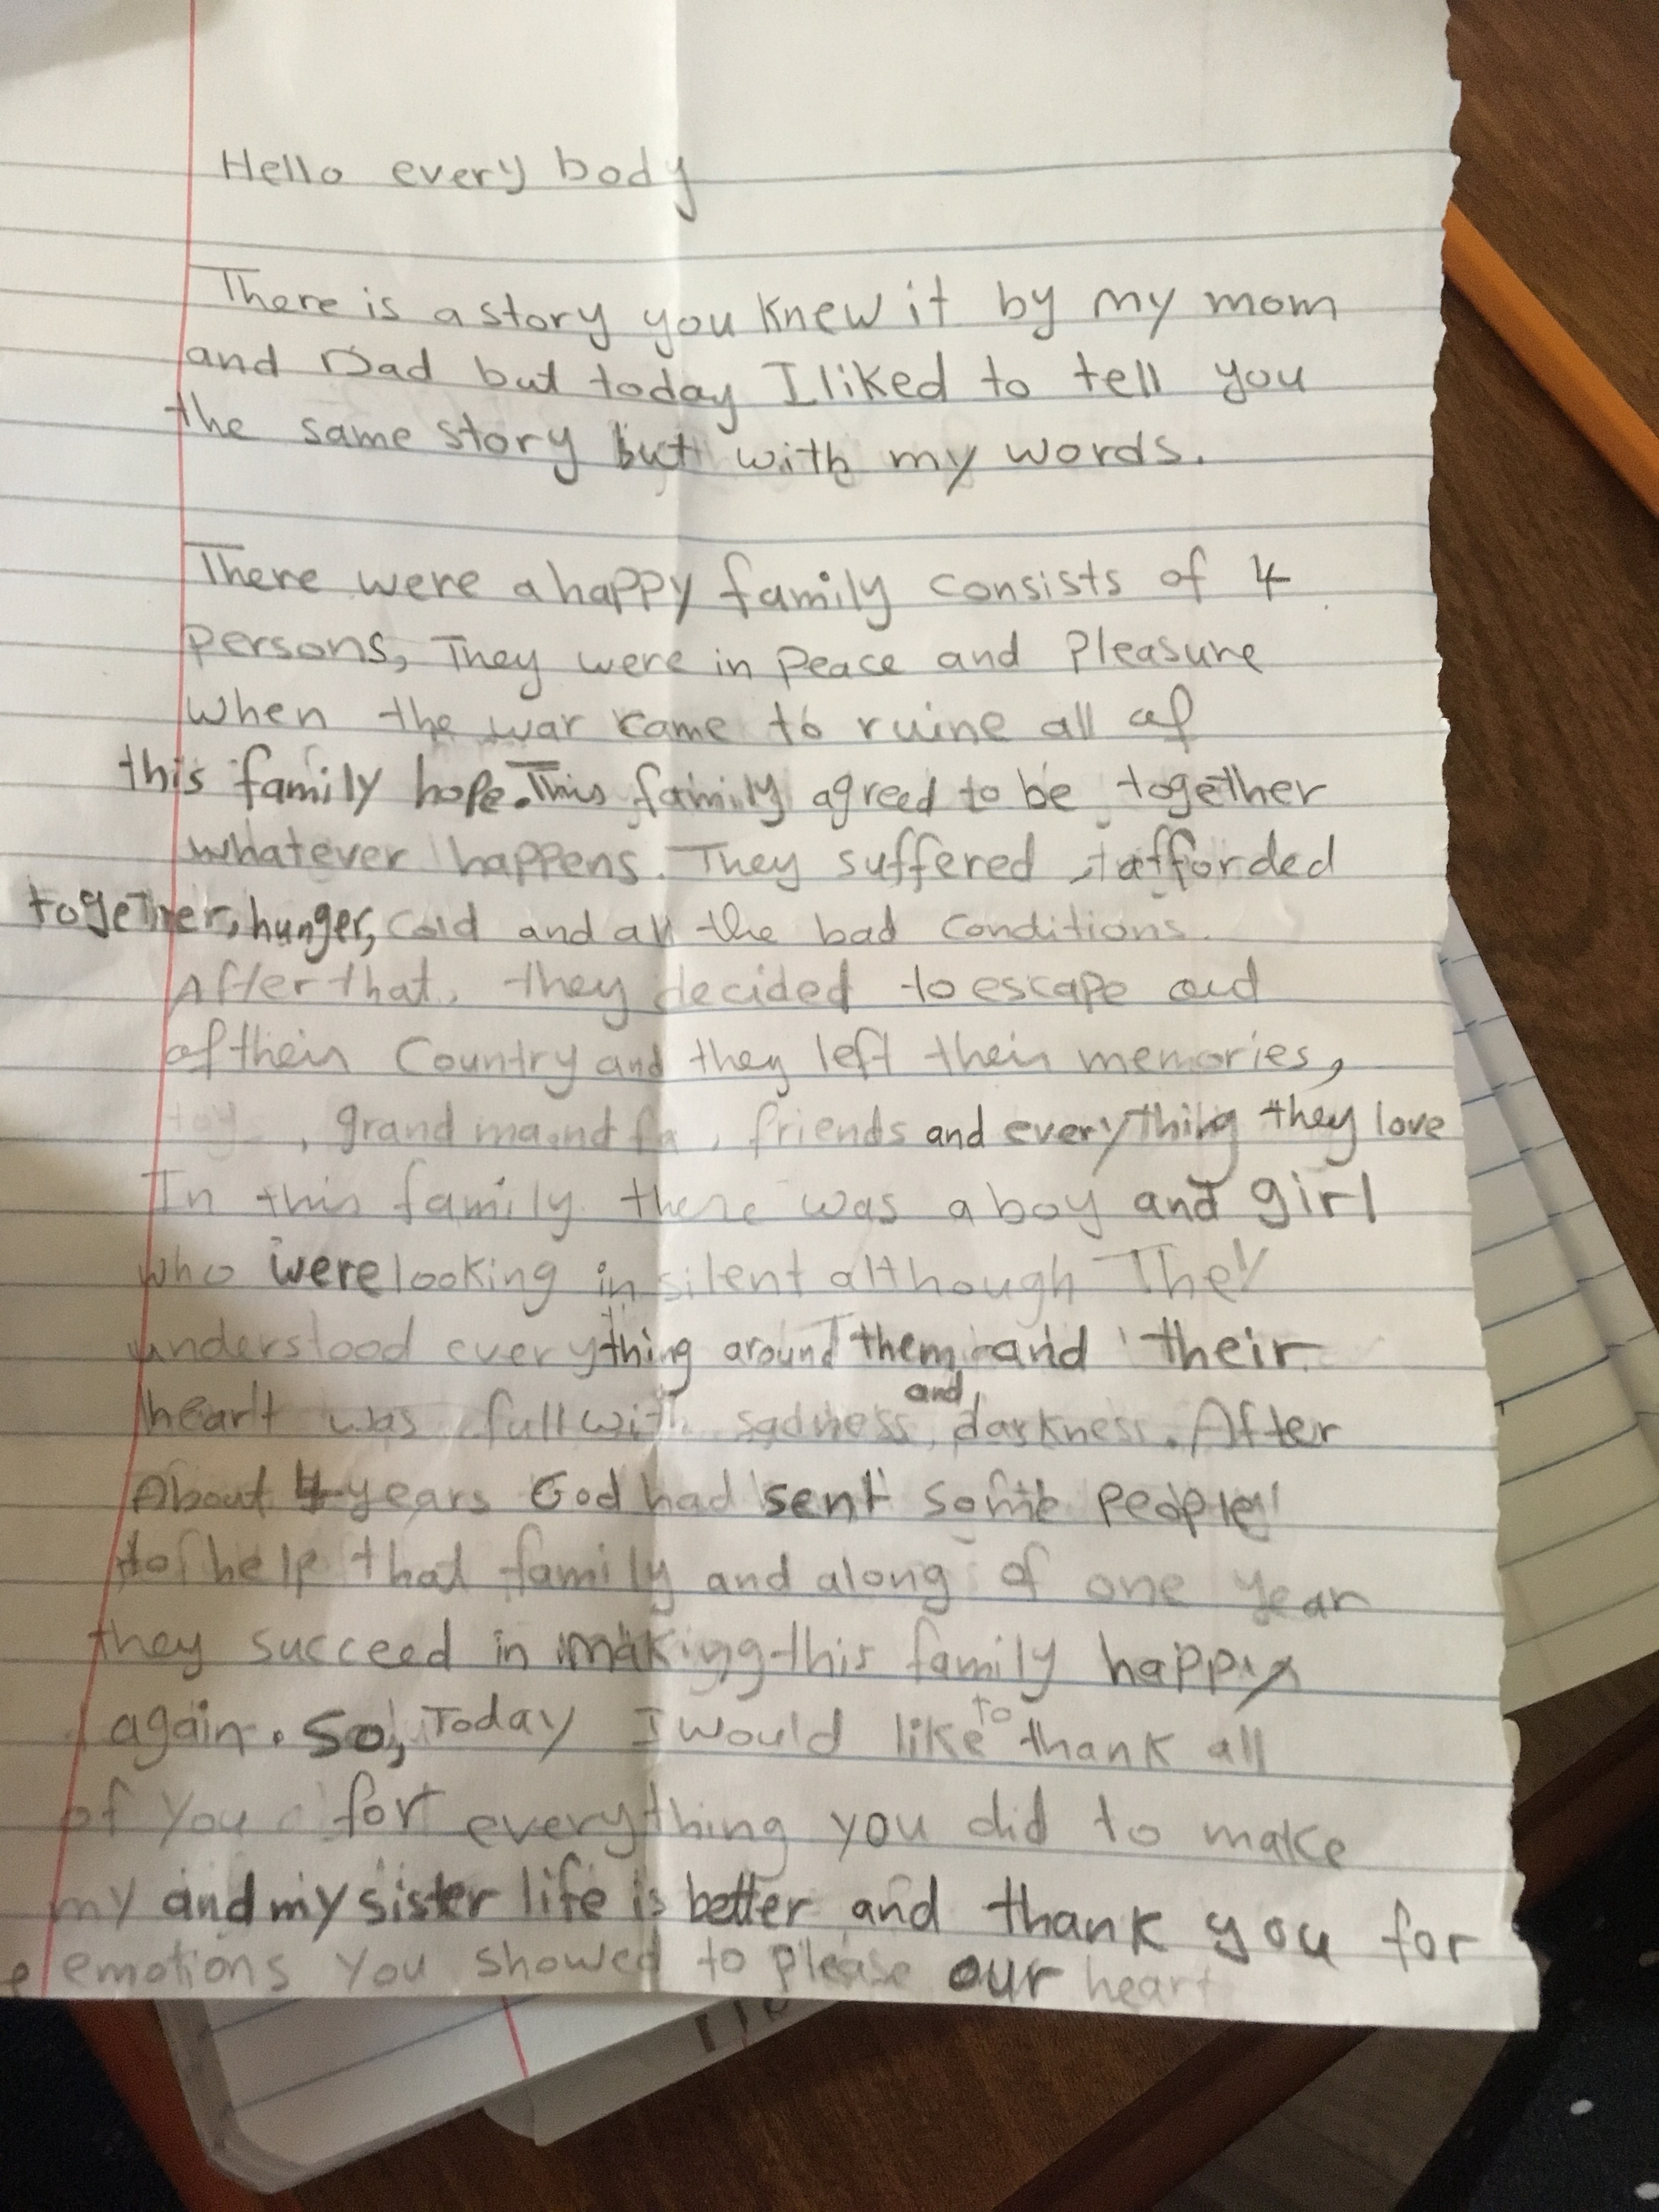 Hello every body
There is a story you knew it by my mom
and Dad but today I liked to tell you
the same story but with my words.
There were a happy family consists of 4
Persons, They were in Peace and Pleasure
when the war came to ruine all of
this family hope. This family agreed to be together
whatever happens. They suffered, afforded
together, hunger, cold and all the bad conditions.
After that, they decided to escape out
of their Country and they left their memories,
, grand ma and fa, friends and everything they love
In this family there was a boy and girl
who were looking in silent although They
understood everything around them and their
heart was full with sadness and darkness. After
About 4 years God had sent some people
to help that family and along of one year
they succeed in making this family happy
again. So, Today I would like to thank all
of you for everything you did to make
my and my sister life is better and thank you for
emotions you showed to please our heart